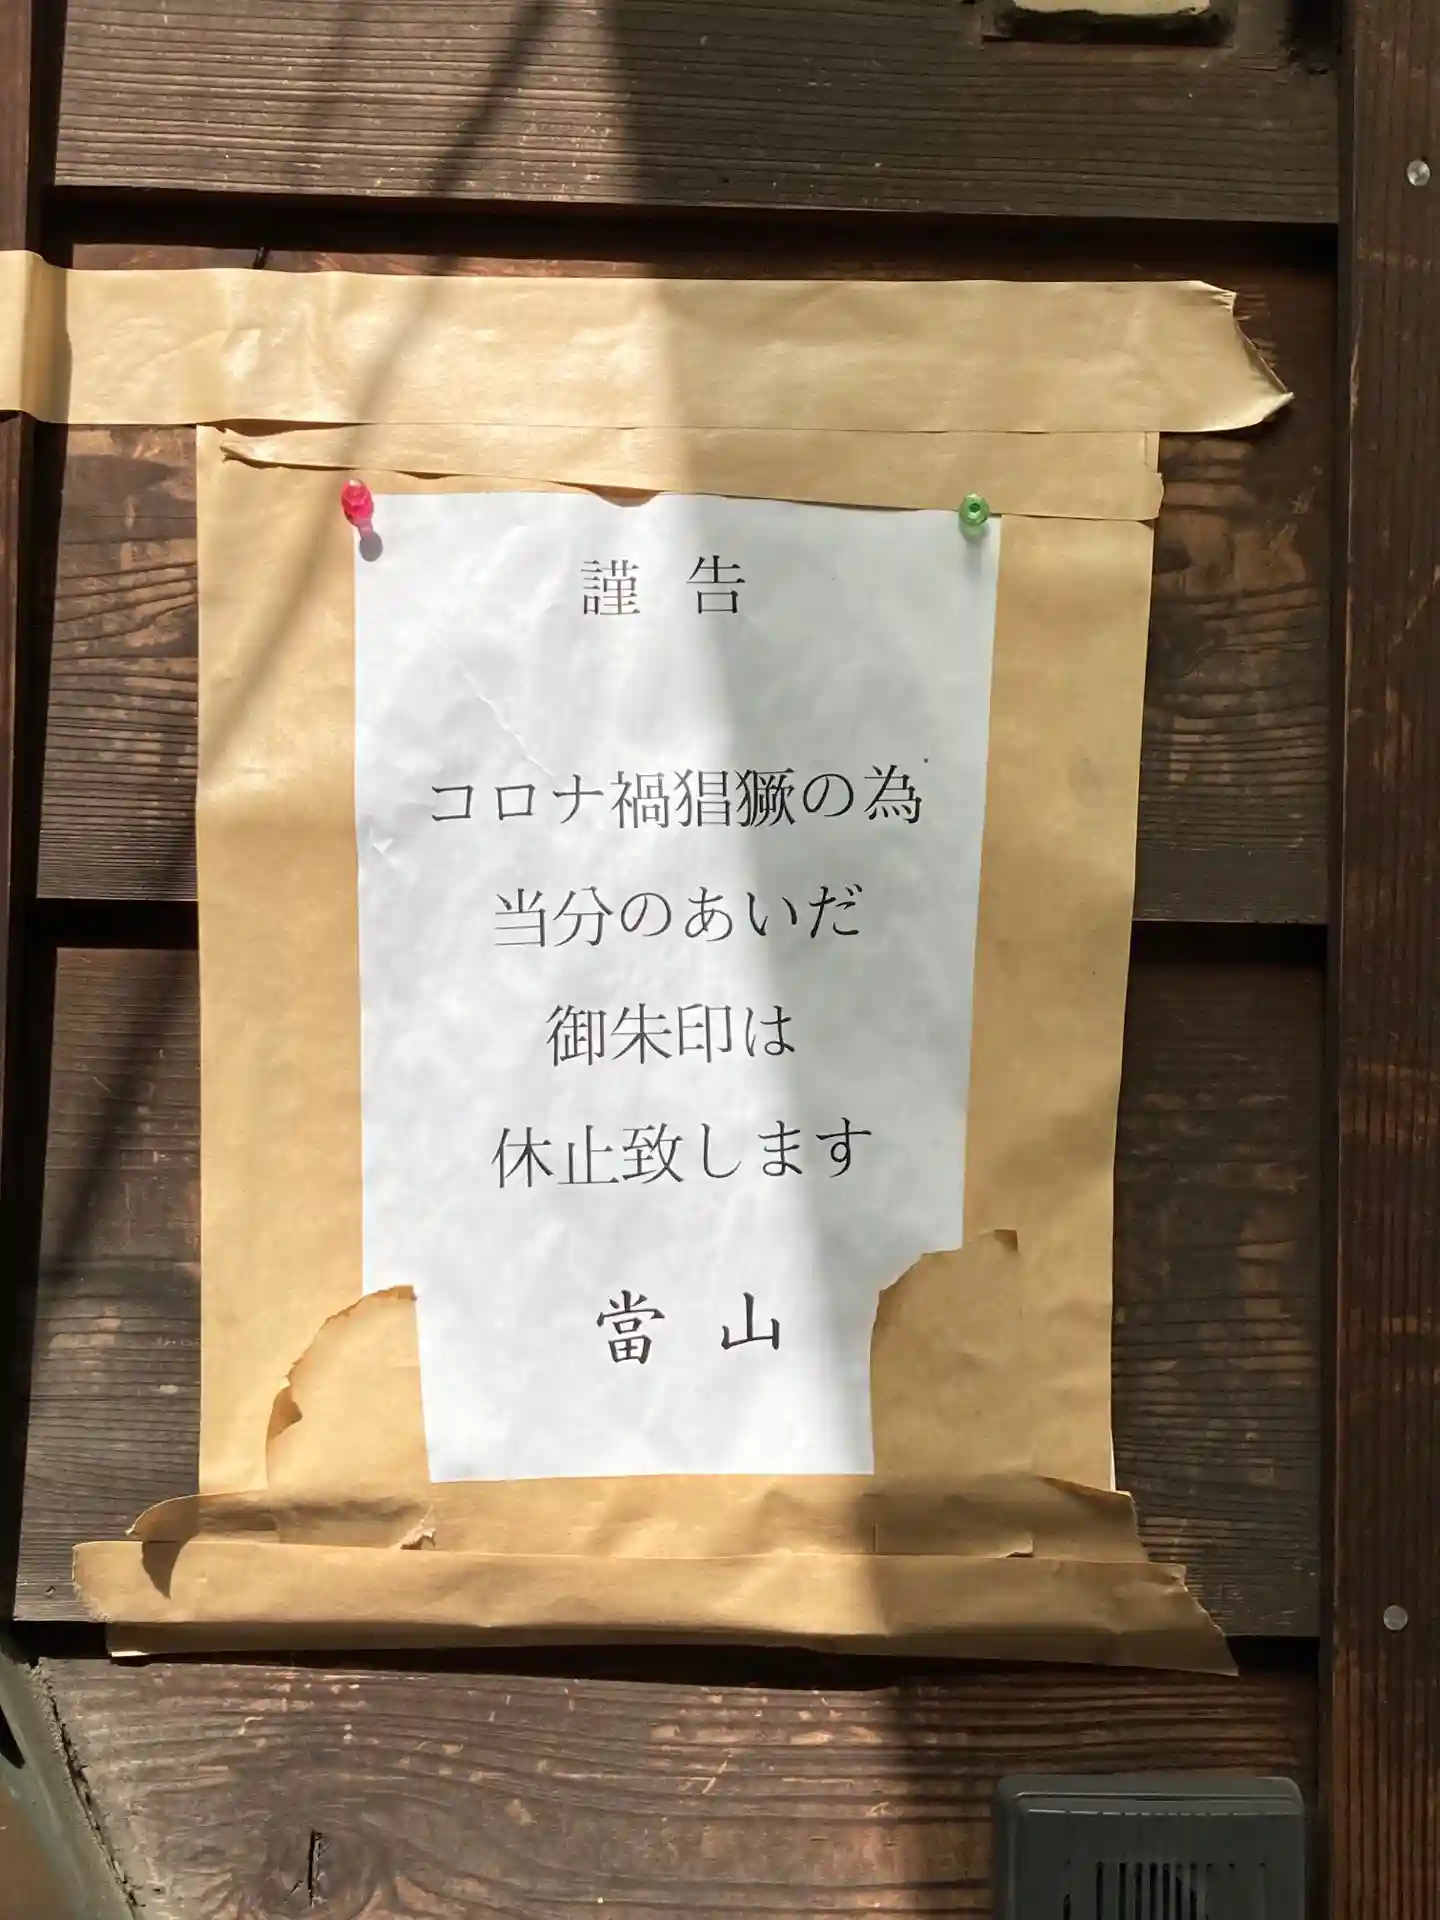 謹 告
コロナ禍猖獗の為
当分のあいだ
御朱印は
休止致します
當 山